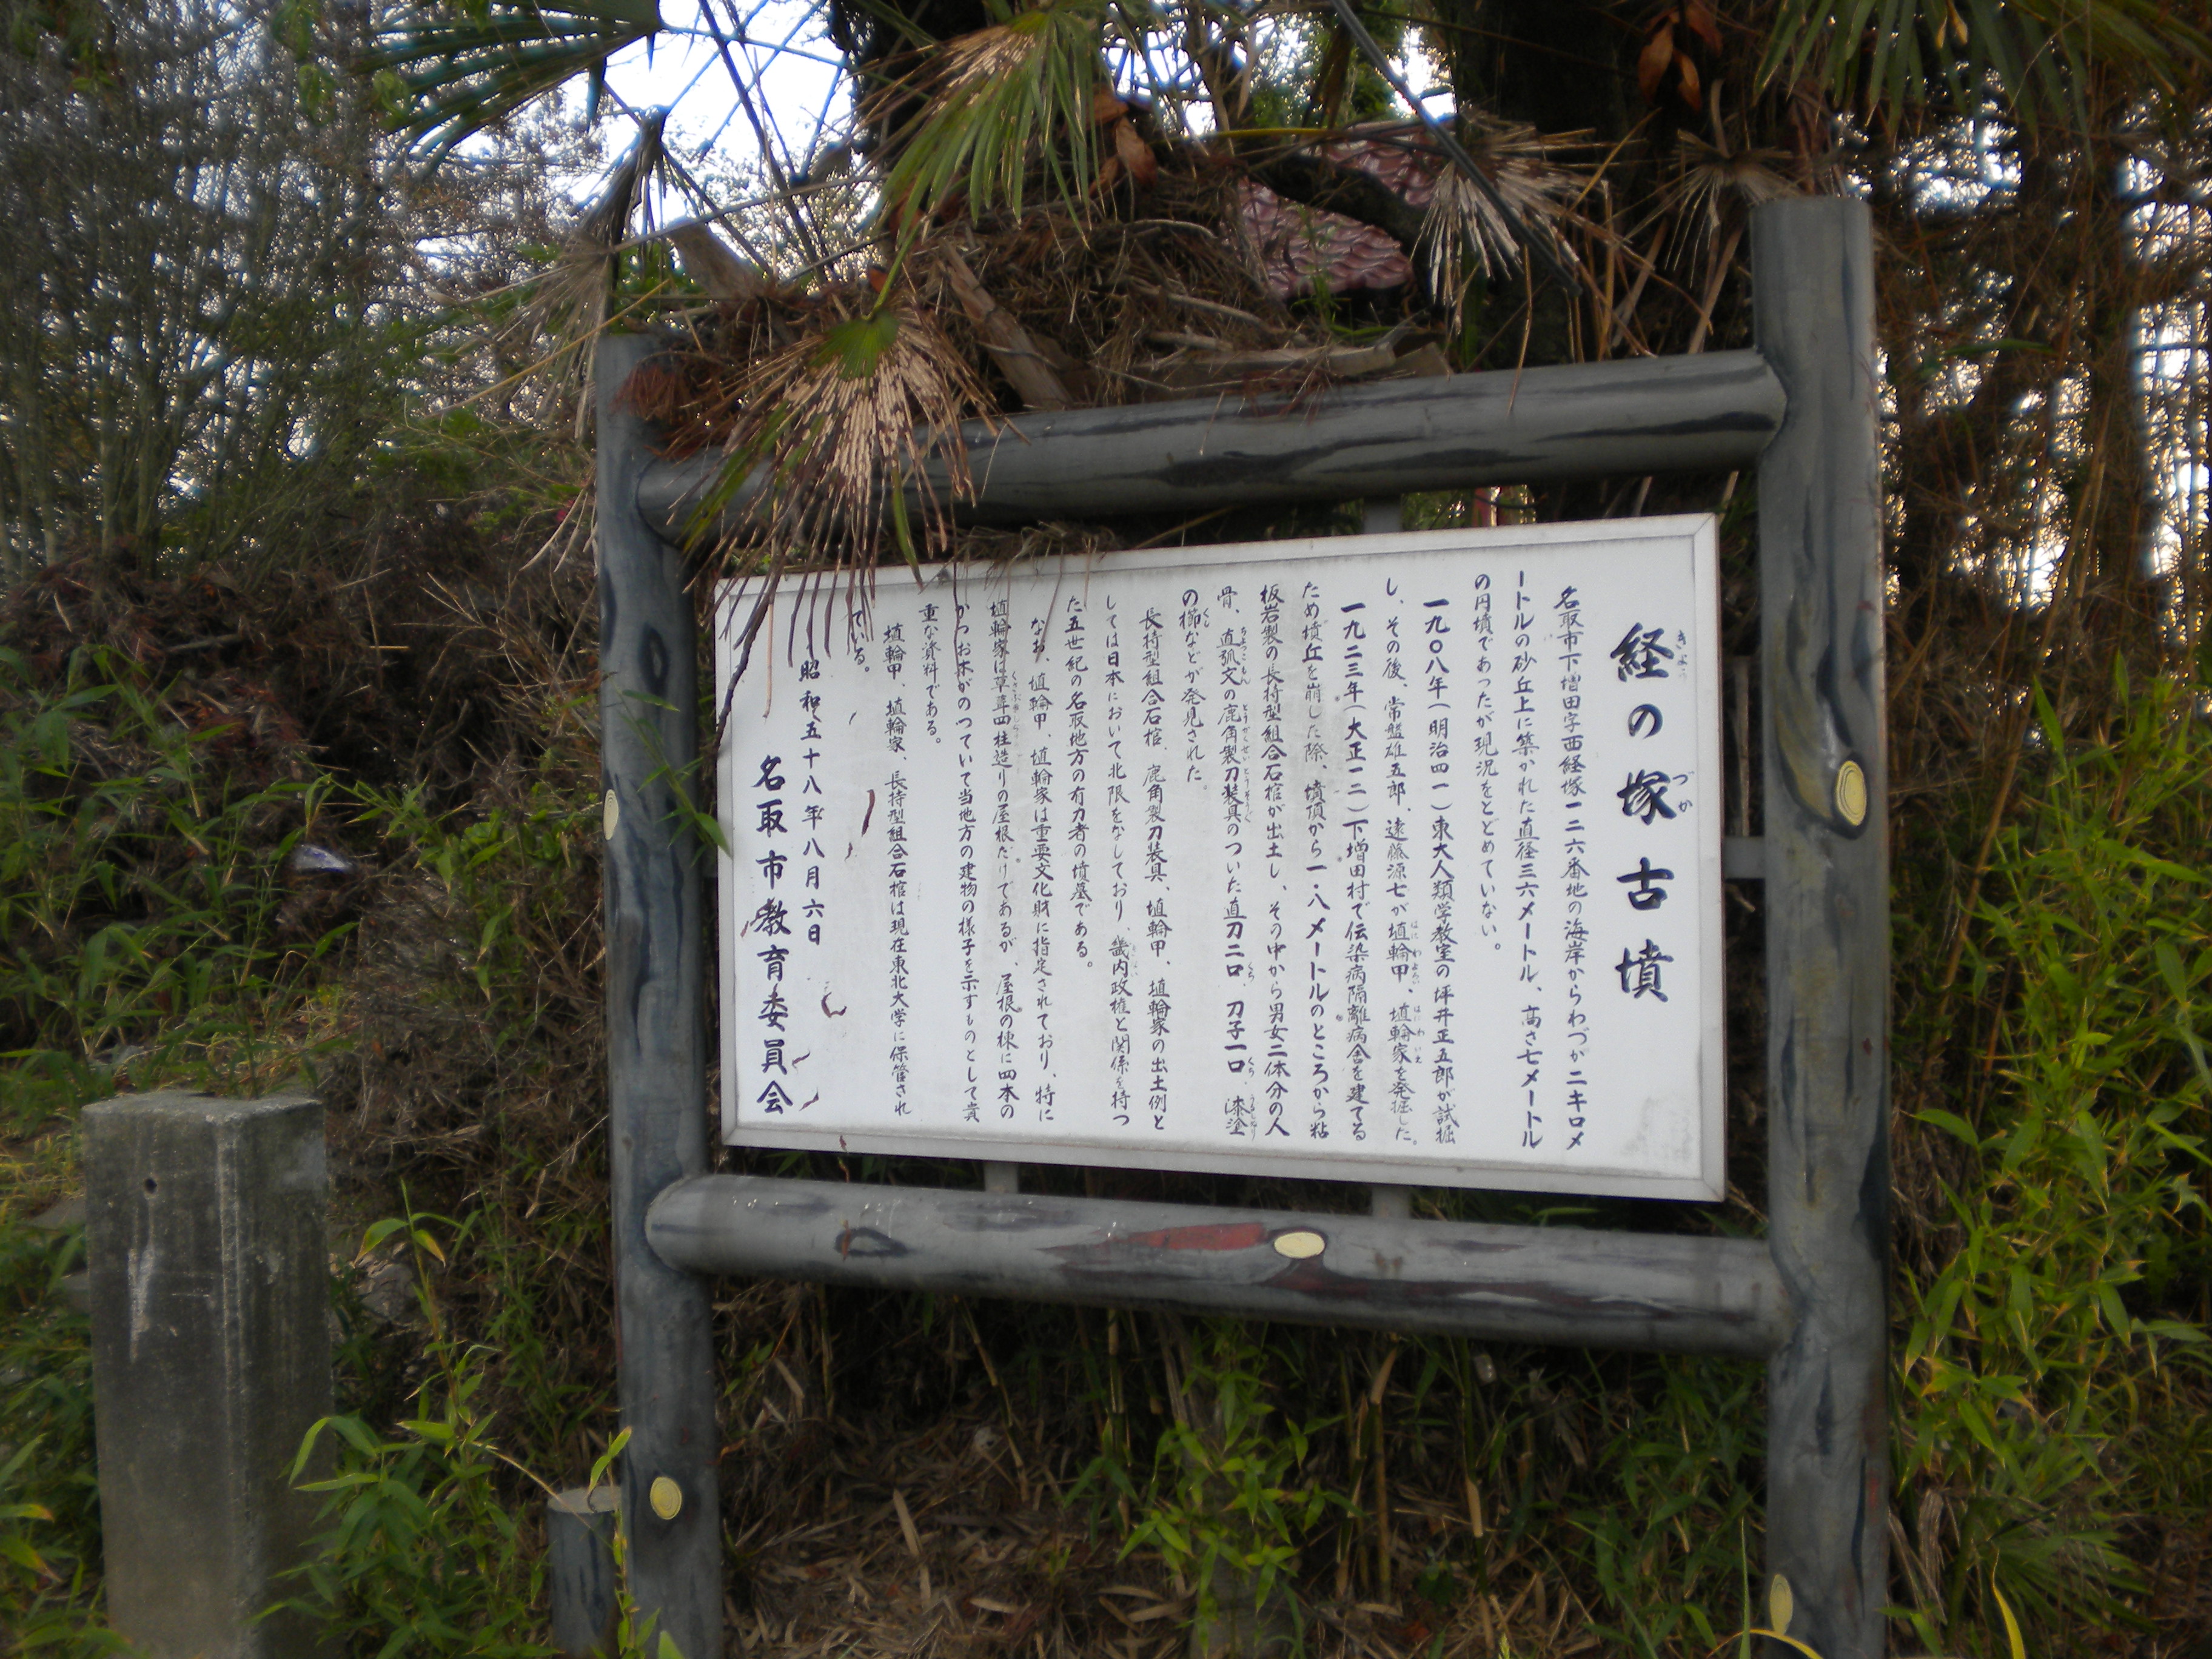 経の塚古墳
名取市下増田字西経塚一二六番地の海岸からわづか二キロメ
ートルの砂丘上に築かれた直径三六メートル、高さ七メートル
の円墳であったが現況をとどめていない。
一九〇八年(明治四一)東大人類学教室の坪井正五郎が試掘
し、その後、常盤雄五郎、遠藤源七が埴輪甲、埴輪家を発掘した。
一九二三年(大正一二)下増田村で伝染病隔離病舎を建てる
ため墳丘を崩した際、墳頂から一・八メートルのところから粘
板岩製の長持型組合石棺が出土し、その中から男女二体分の人
骨、直弧文の鹿角製刀装具のついた直刀二口、刀子一口、漆塗
の櫛などが発見された。
長持型組合石棺、鹿角製刀装具、埴輪甲、埴輪家の出土例と
しては日本において北限をなしており、畿内政権と関係を持つ
た五世紀の名取地方の有力者の墳墓である。
なお、埴輪甲、埴輪家は重要文化財に指定されており、特に
埴輪家は草葺四柱造りの屋根だけであるが、屋根の棟に四本の
かつお木がのっていて当地方の建物の様子を示すものとして貴
重な資料である。
埴輪甲、埴輪家、長持型組合石棺は現在東北大学に保管され
ている。
昭和五十八年八月六日
名取市教育委員会